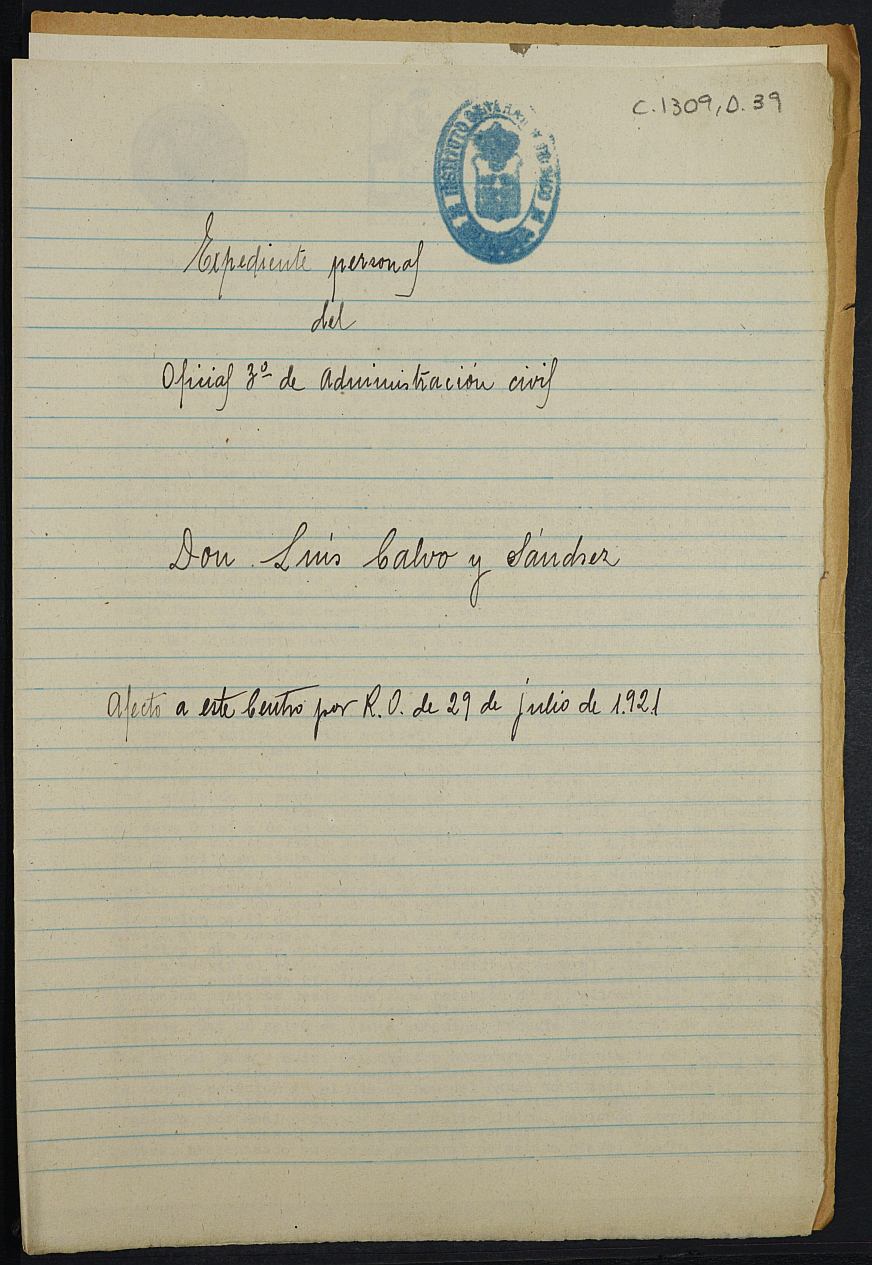 C.1309, D. 39
INSTITUTO
Expediente personal
del
Oficial 3º de Administración civil
Don Luis Calvo y Sánchez
Afecto a este Centro por R. O. de 29 de julio de 1.921